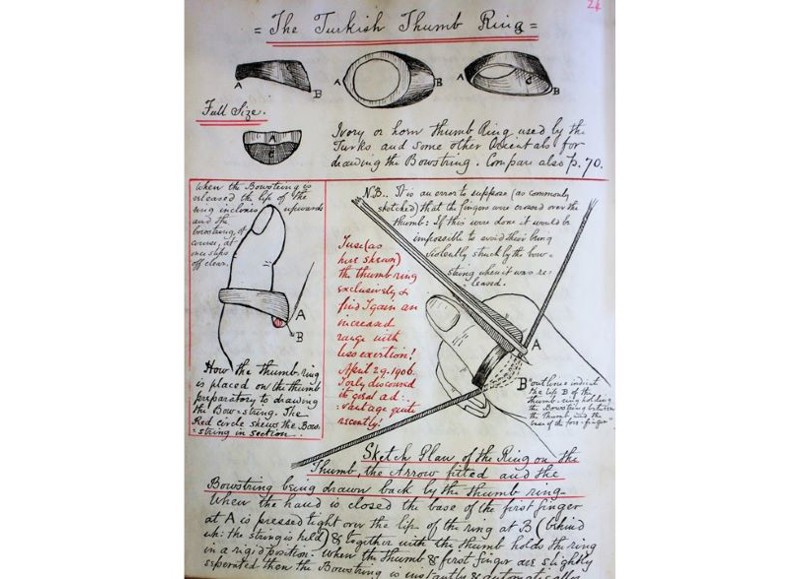 24
= The Turkish Thumb Ring =
A B A B A B
Full Size.
A
Ivory or horn thumb Ring used by the
Turks and some other Orientals for
drawing the Bowstring. Compare also p. 70.
When the Bowstring is
released the lip of the
ring inclines upwards
and the
bowstring, of
course, at
once slips
off clear.
A
B
How the thumb-ring
is placed on the thumb
preparatory to drawing
the Bow-string. The
Red circle shews the Bow-
:string in section.
N.B. It is an error to suppose (as commonly
sketched) that the fingers were crossed over the
thumb: If this were done it would be
impossible to avoid their being
violently struck by the bow-
string when it was re-
:leased.
I use (as
here shewn)
the thumb ring
exclusively &
find I gain an
increased
range with
less exertion!
April 29. 1906.
I only discovered
its great ad-
:vantage quite
recently!
A
B
outlines indicate
the lip B of the
thumb-ring holding
the Bowstring between
the thumb and the
base of the fore-finger
Sketch Plan of the Ring on the
Thumb, the Arrow fitted and the
Bowstring being drawn back by the thumb ring-
When the hand is closed the base of the first finger
at A is pressed tight over the lip of the ring at B (behind
wh: the string is held) & together with the thumb holds the ring
in a rigid position. When the thumb & first finger are slightly
seperated then the Bowstring is instantly & automatically